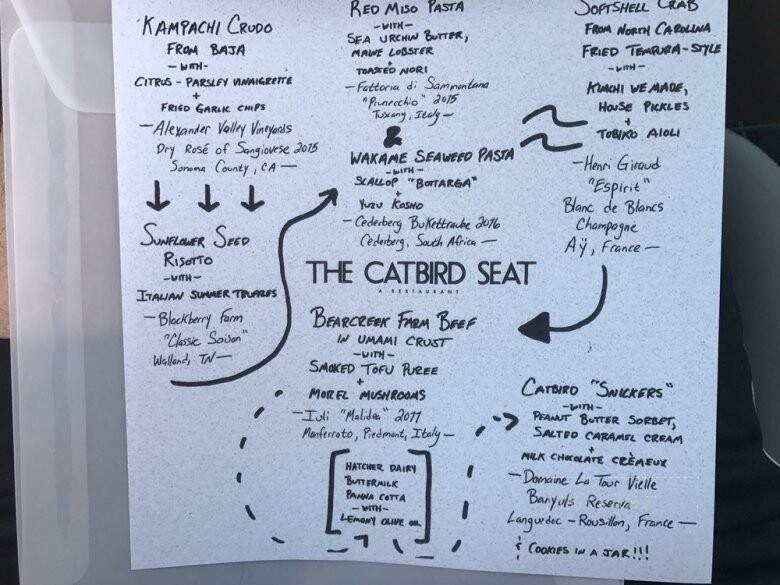 KAMPACHI CRUDO
FROM BAJA
- WITH -
CITRUS - PARSLEY VINAIGRETTE
+
FRIED GARLIC CHIPS
- Alexander Valley Vineyards
Dry Rosé of Sangiovese 2015
Sonoma County, CA -
SUNFLOWER SEED
RISOTTO
- WITH -
ITALIAN SUMMER TRUFFLES
- Blackberry Farm
"Classic Saison"
Walland, TN -
RED MISO PASTA
- WITH -
SEA URCHIN BUTTER,
MAINE LOBSTER
+
TOASTED NORI
- Fattoria di Sammontana
"Primecchio" 2015
Tuscany, Italy -
&
WAKAME SEAWEED PASTA
- WITH -
SCALLOP "BOTTARGA"
+
YUZU KOSHO
- Cederberg Bukettraube 2016
Cederberg, South Africa -
SOFTSHELL CRAB
FROM NORTH CAROLINA
FRIED TEMPURA-STYLE
- WITH -
KIMCHI WE MADE,
HOUSE PICKLES
+
TOBIKO AIOLI
- Henri Giraud
"Espirit"
Blanc de Blancs
Champagne
Aÿ, France -
THE CATBIRD SEAT
A RESTAURANT
BEARCREEK FARM BEEF
IN UMAMI CRUST
- WITH -
SMOKED TOFU PUREE
+
MOREL MUSHROOMS
- Iuli "Malidea" 2011
Monferrato, Piedmont, Italy -
HATCHER DAIRY
BUTTERMILK
PANNA COTTA
- WITH -
LEMONY OLIVE OIL
CATBIRD "SNICKERS"
- WITH -
PEANUT BUTTER SORBET,
SALTED CARAMEL CREAM
+
MILK CHOCOLATE CRÈMEUX
- Domaine La Tour Vielle
Banyuls Reserva
Languedoc - Rousillon, France -
& COOKIES IN A JAR!!!